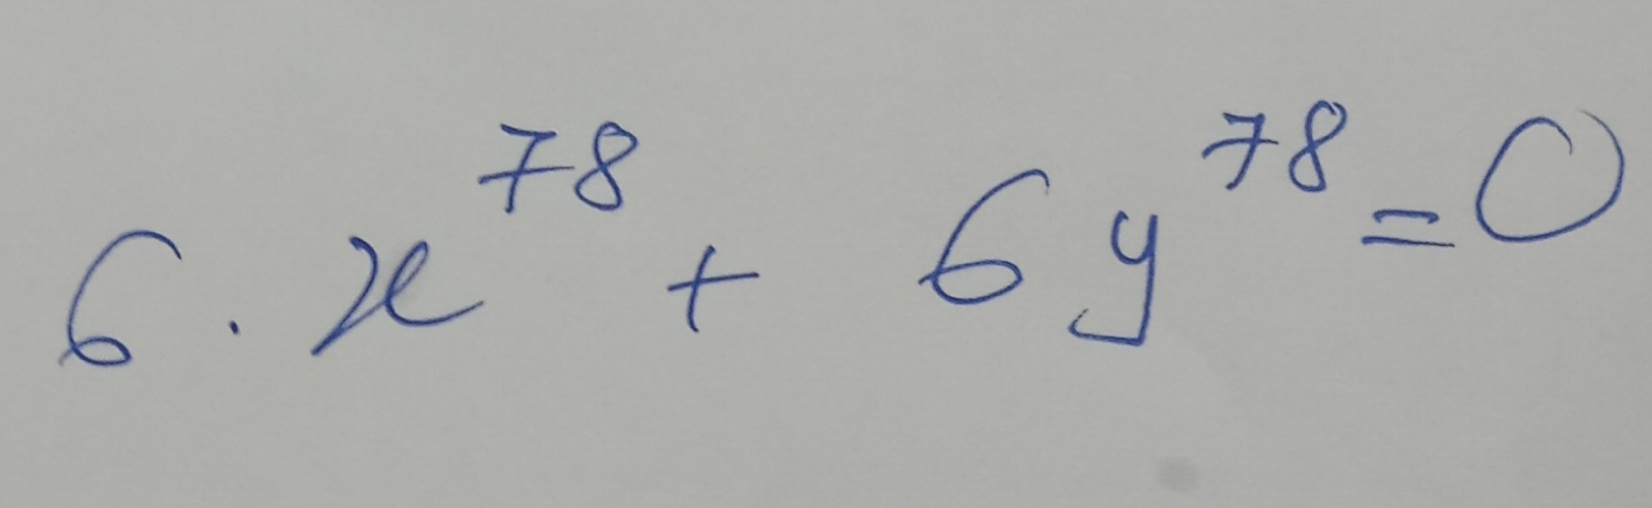 6 · x^78 + 6y^78 = 0